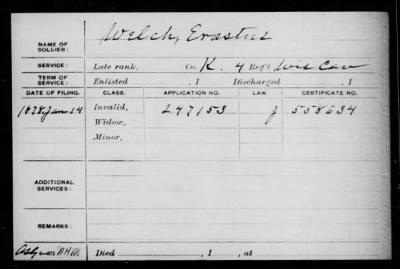 Welch, Erastus
NAME OF
SOLDIER:
SERVICE: Late rank, Co. K. 4 Reg't Wis Cav
TERM OF
SERVICE: Enlisted , 1 Discharged , 1
DATE OF FILING. CLASS. APPLICATION NO. LAW. CERTIFICATE NO.
1878 Jan 14 Invalid, 247153 J 558634
Widow,
Minor,
ADDITIONAL
SERVICES:
REMARKS:
Died , 1 , at